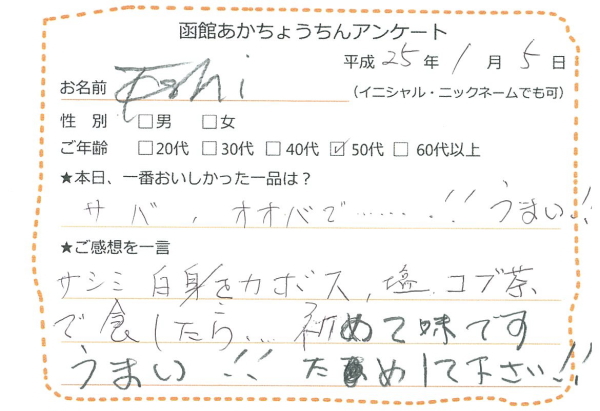 函館あかちょうちんアンケート
平成 25 年 1 月 5 日
お名前 Toshi (イニシャル・ニックネームでも可)
性 別 □男 □女
ご年齢 □20代 □30代 □40代 ☑50代 □60代以上
★本日、一番おいしかった一品は?
サバ、オオバで……!! うまい!!
★ご感想を一言
サシミ 白身をカボス、塩 コブ茶
で食したら… 初めて味です
うまい!! ためして下さい!!